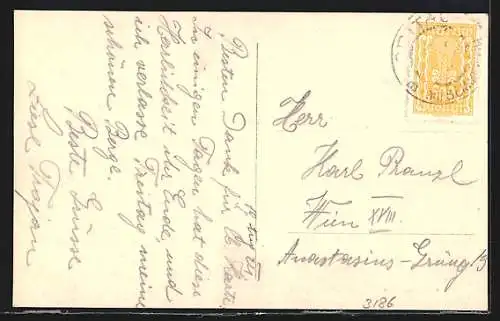 Besten Dank für Karte.
In einigen Tagen hat diese
Herrlichkeit ihr Ende, und
ich verlasse Freitag meine
schönen Berge.
Beste Grüsse
Liesl Trajan
Herr
Karl
Wien XVIII.
Anastasius-Grüng.
3186